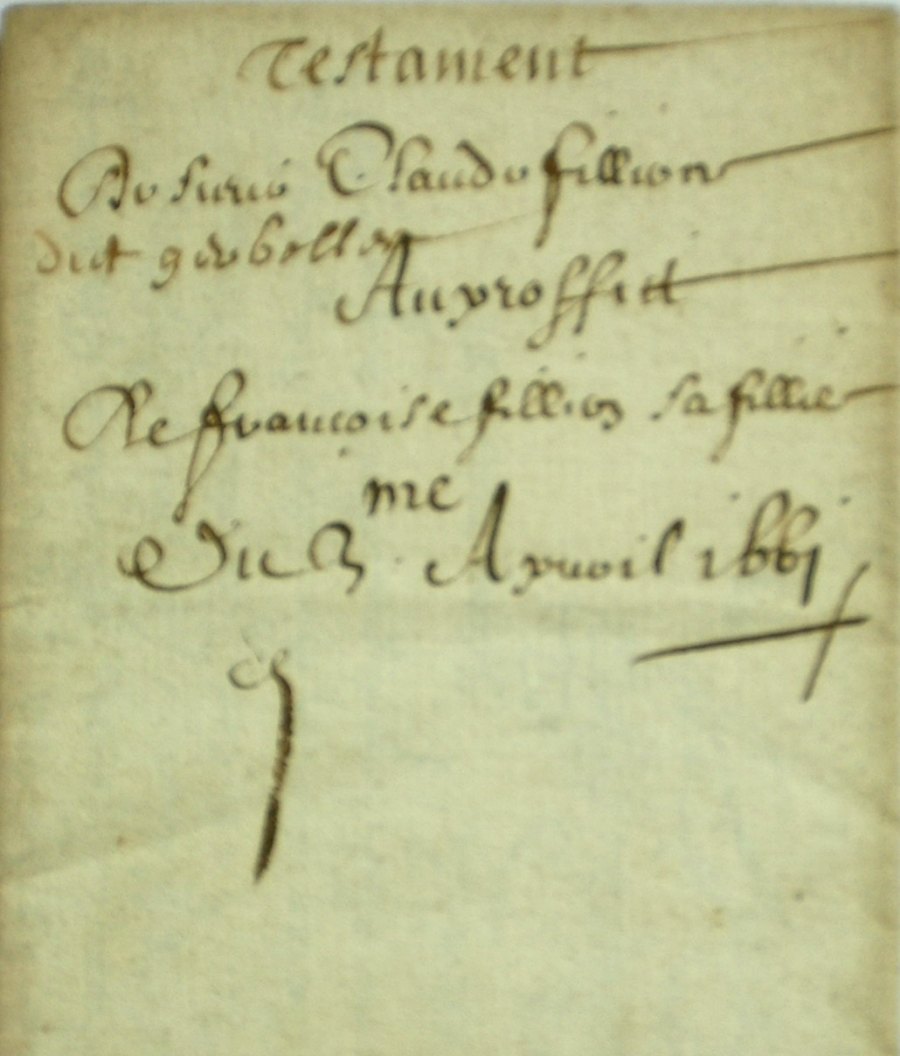 Testament
De Claude fillion
dict gerbollier
Au proffict
De françoise fillion sa fillie
me
Du 3 Apvril 1661